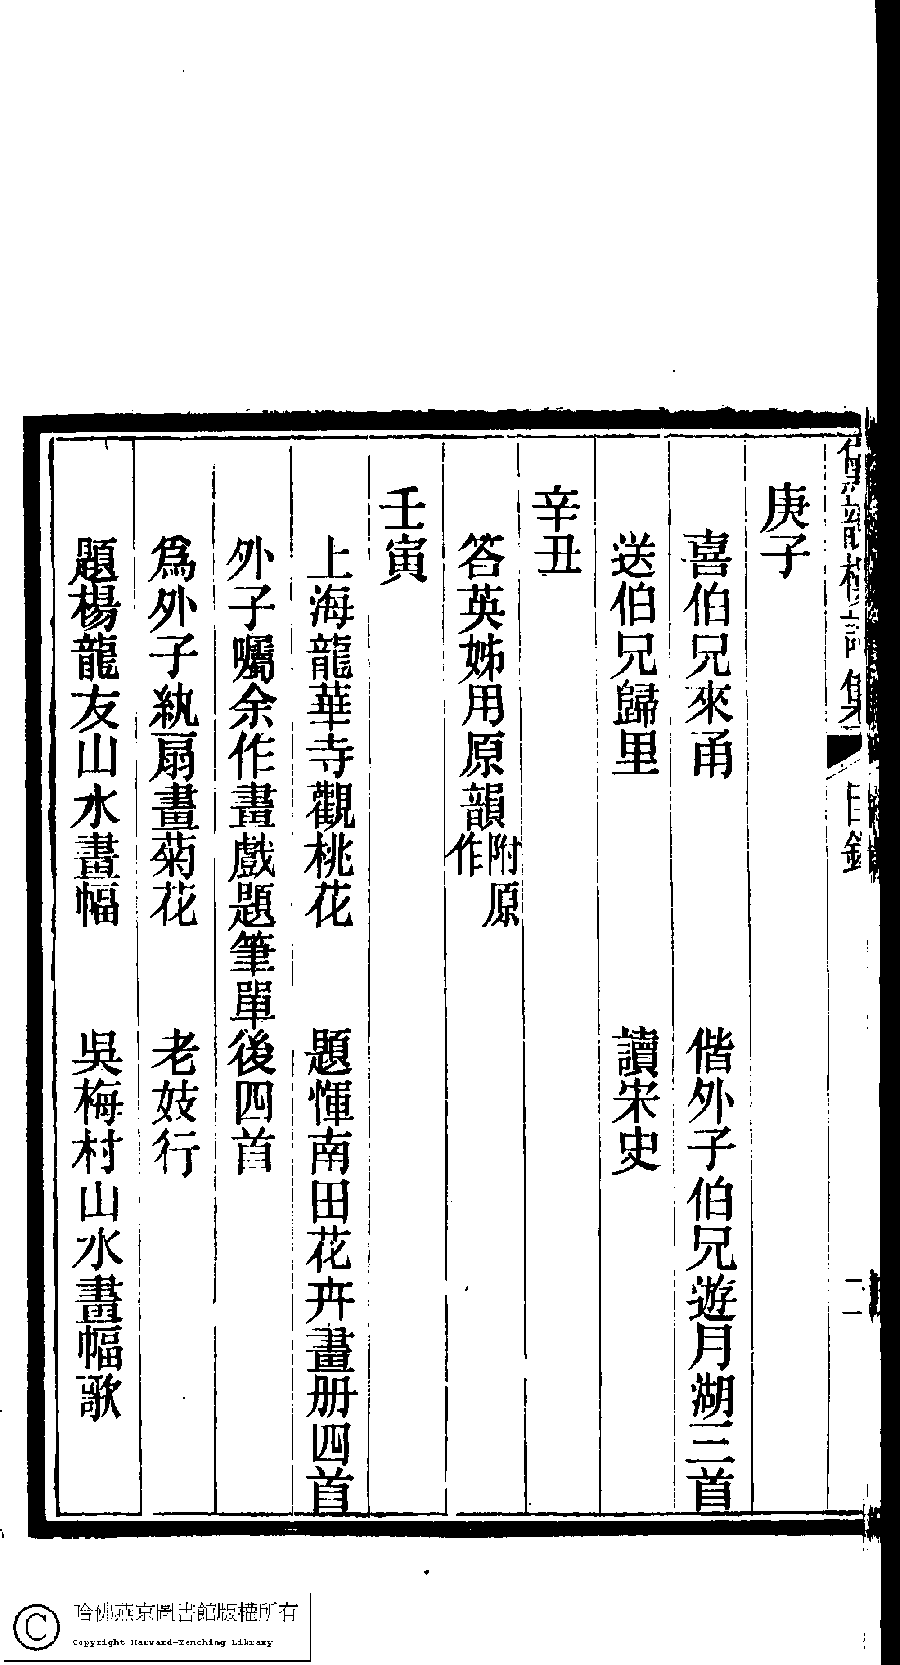 庚子
喜伯兄來甬　偕外子伯兄遊月湖三首
送伯兄歸里　讀宋史
辛丑
答英姊用原韻附原作
壬寅
上海龍華寺觀桃花　題惲南田花卉畫册四首
外子囑余作畫戲題筆單後四首
爲外子紈扇畫菊花　老妓行
題楊龍友山水畫幅　吳梅村山水畫幅歌
目錄
二
哈佛燕京圖書館版權所有
Copyright Harvard-Yenching Library